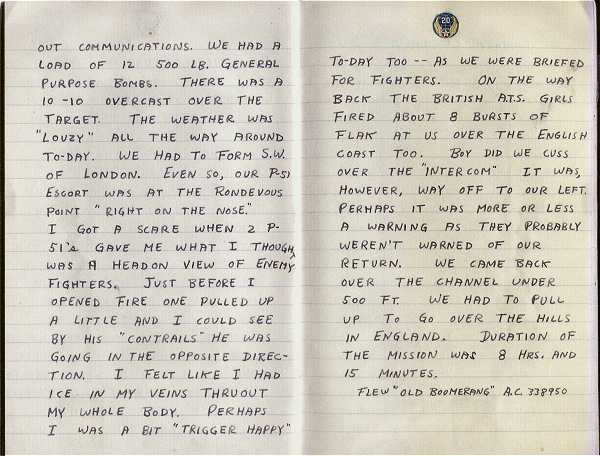 OUT COMMUNICATIONS. WE HAD A
LOAD OF 12 500 LB. GENERAL
PURPOSE BOMBS. THERE WAS A
10-10 OVERCAST OVER THE
TARGET. THE WEATHER WAS
"LOUZY" ALL THE WAY AROUND
TO-DAY. WE HAD TO FORM S.W.
OF LONDON. EVEN SO, OUR P-51
ESCORT WAS AT THE RONDEVOUS
POINT "RIGHT ON THE NOSE."
I GOT A SCARE WHEN 2 P-
51's GAVE ME WHAT I THOUGH
WAS A HEADON VIEW OF ENEMY
FIGHTERS. JUST BEFORE I
OPENED FIRE ONE PULLED UP
A LITTLE AND I COULD SEE
BY HIS "CONTRAILS" HE WAS
GOING IN THE OPPOSITE DIREC-
TION. I FELT LIKE I HAD
ICE IN MY VEINS THRUOUT
MY WHOLE BODY. PERHAPS
I WAS A BIT "TRIGGER HAPPY"
20
TO-DAY TOO -- AS WE WERE BRIEFED
FOR FIGHTERS. ON THE WAY
BACK THE BRITISH A.T.S. GIRLS
FIRED ABOUT 8 BURSTS OF
FLAK AT US OVER THE ENGLISH
COAST TOO. BOY DID WE CUSS
OVER THE "INTERCOM" IT WAS,
HOWEVER, WAY OFF TO OUR LEFT.
PERHAPS IT WAS MORE OR LESS
A WARNING AS THEY PROBABLY
WEREN'T WARNED OF OUR
RETURN. WE CAME BACK
OVER THE CHANNEL UNDER
500 FT. WE HAD TO PULL
UP TO GO OVER THE HILLS
IN ENGLAND. DURATION OF
THE MISSION WAS 8 HRS. AND
15 MINUTES.
FLEW "OLD BOOMERANG" A.C. 338950